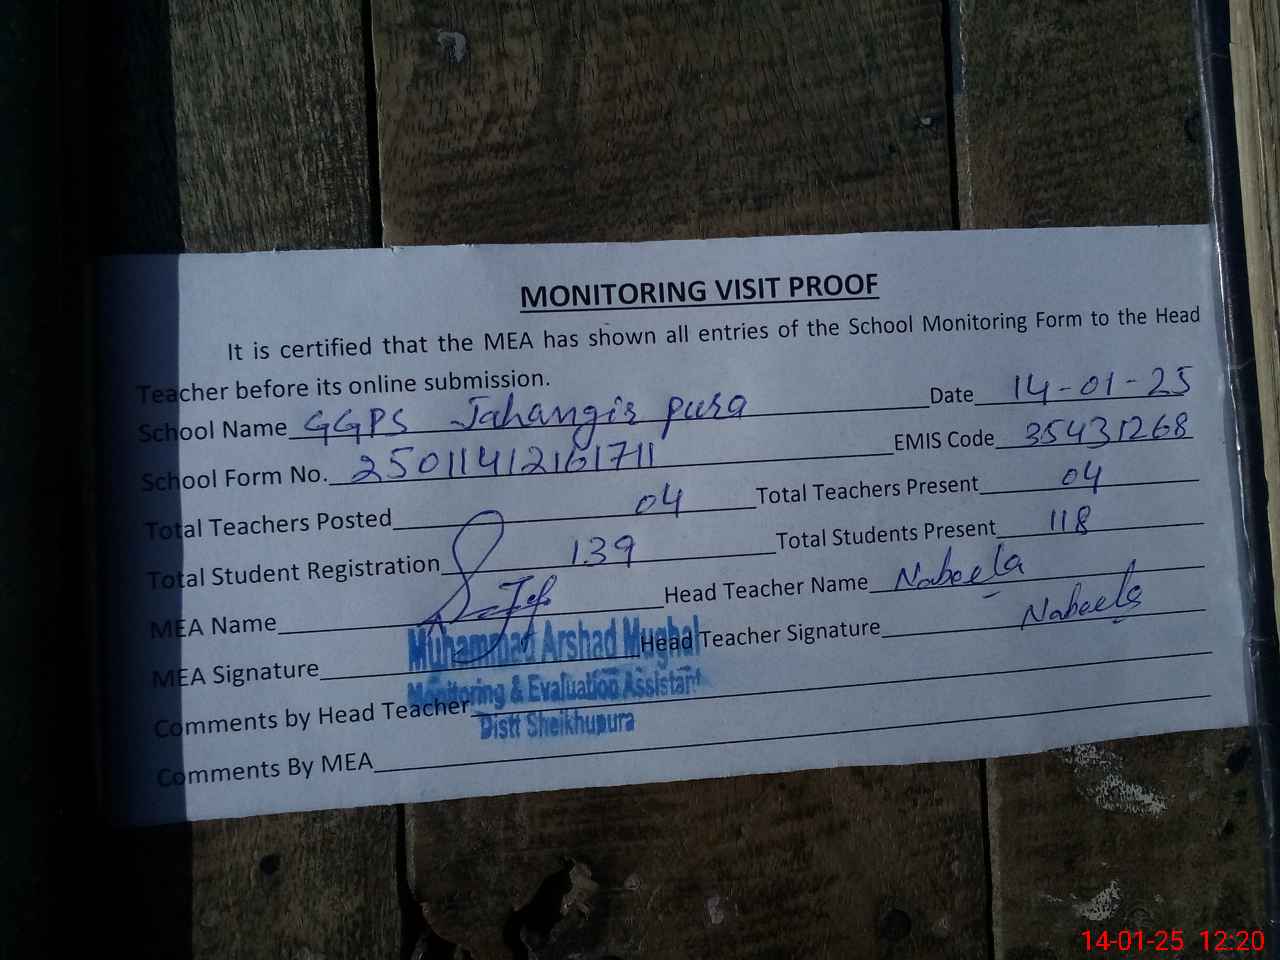 MONITORING VISIT PROOF
It is certified that the MEA has shown all entries of the School Monitoring Form to the Head
Teacher before its online submission.
School Name GGPS Jahangir pura Date 14-01-25
School Form No. 25011412161711 EMIS Code 35431268
Total Teachers Posted 04 Total Teachers Present 04
Total Student Registration 139 Total Students Present 118
MEA Name Head Teacher Name Nabeela
MEA Signature Head Teacher Signature Nabeela
Muhammad Arshad Mughal
Monitoring & Evaluation Assistant
Distt Sheikhupura
Comments by Head Teacher
Comments By MEA
14-01-25 12:20